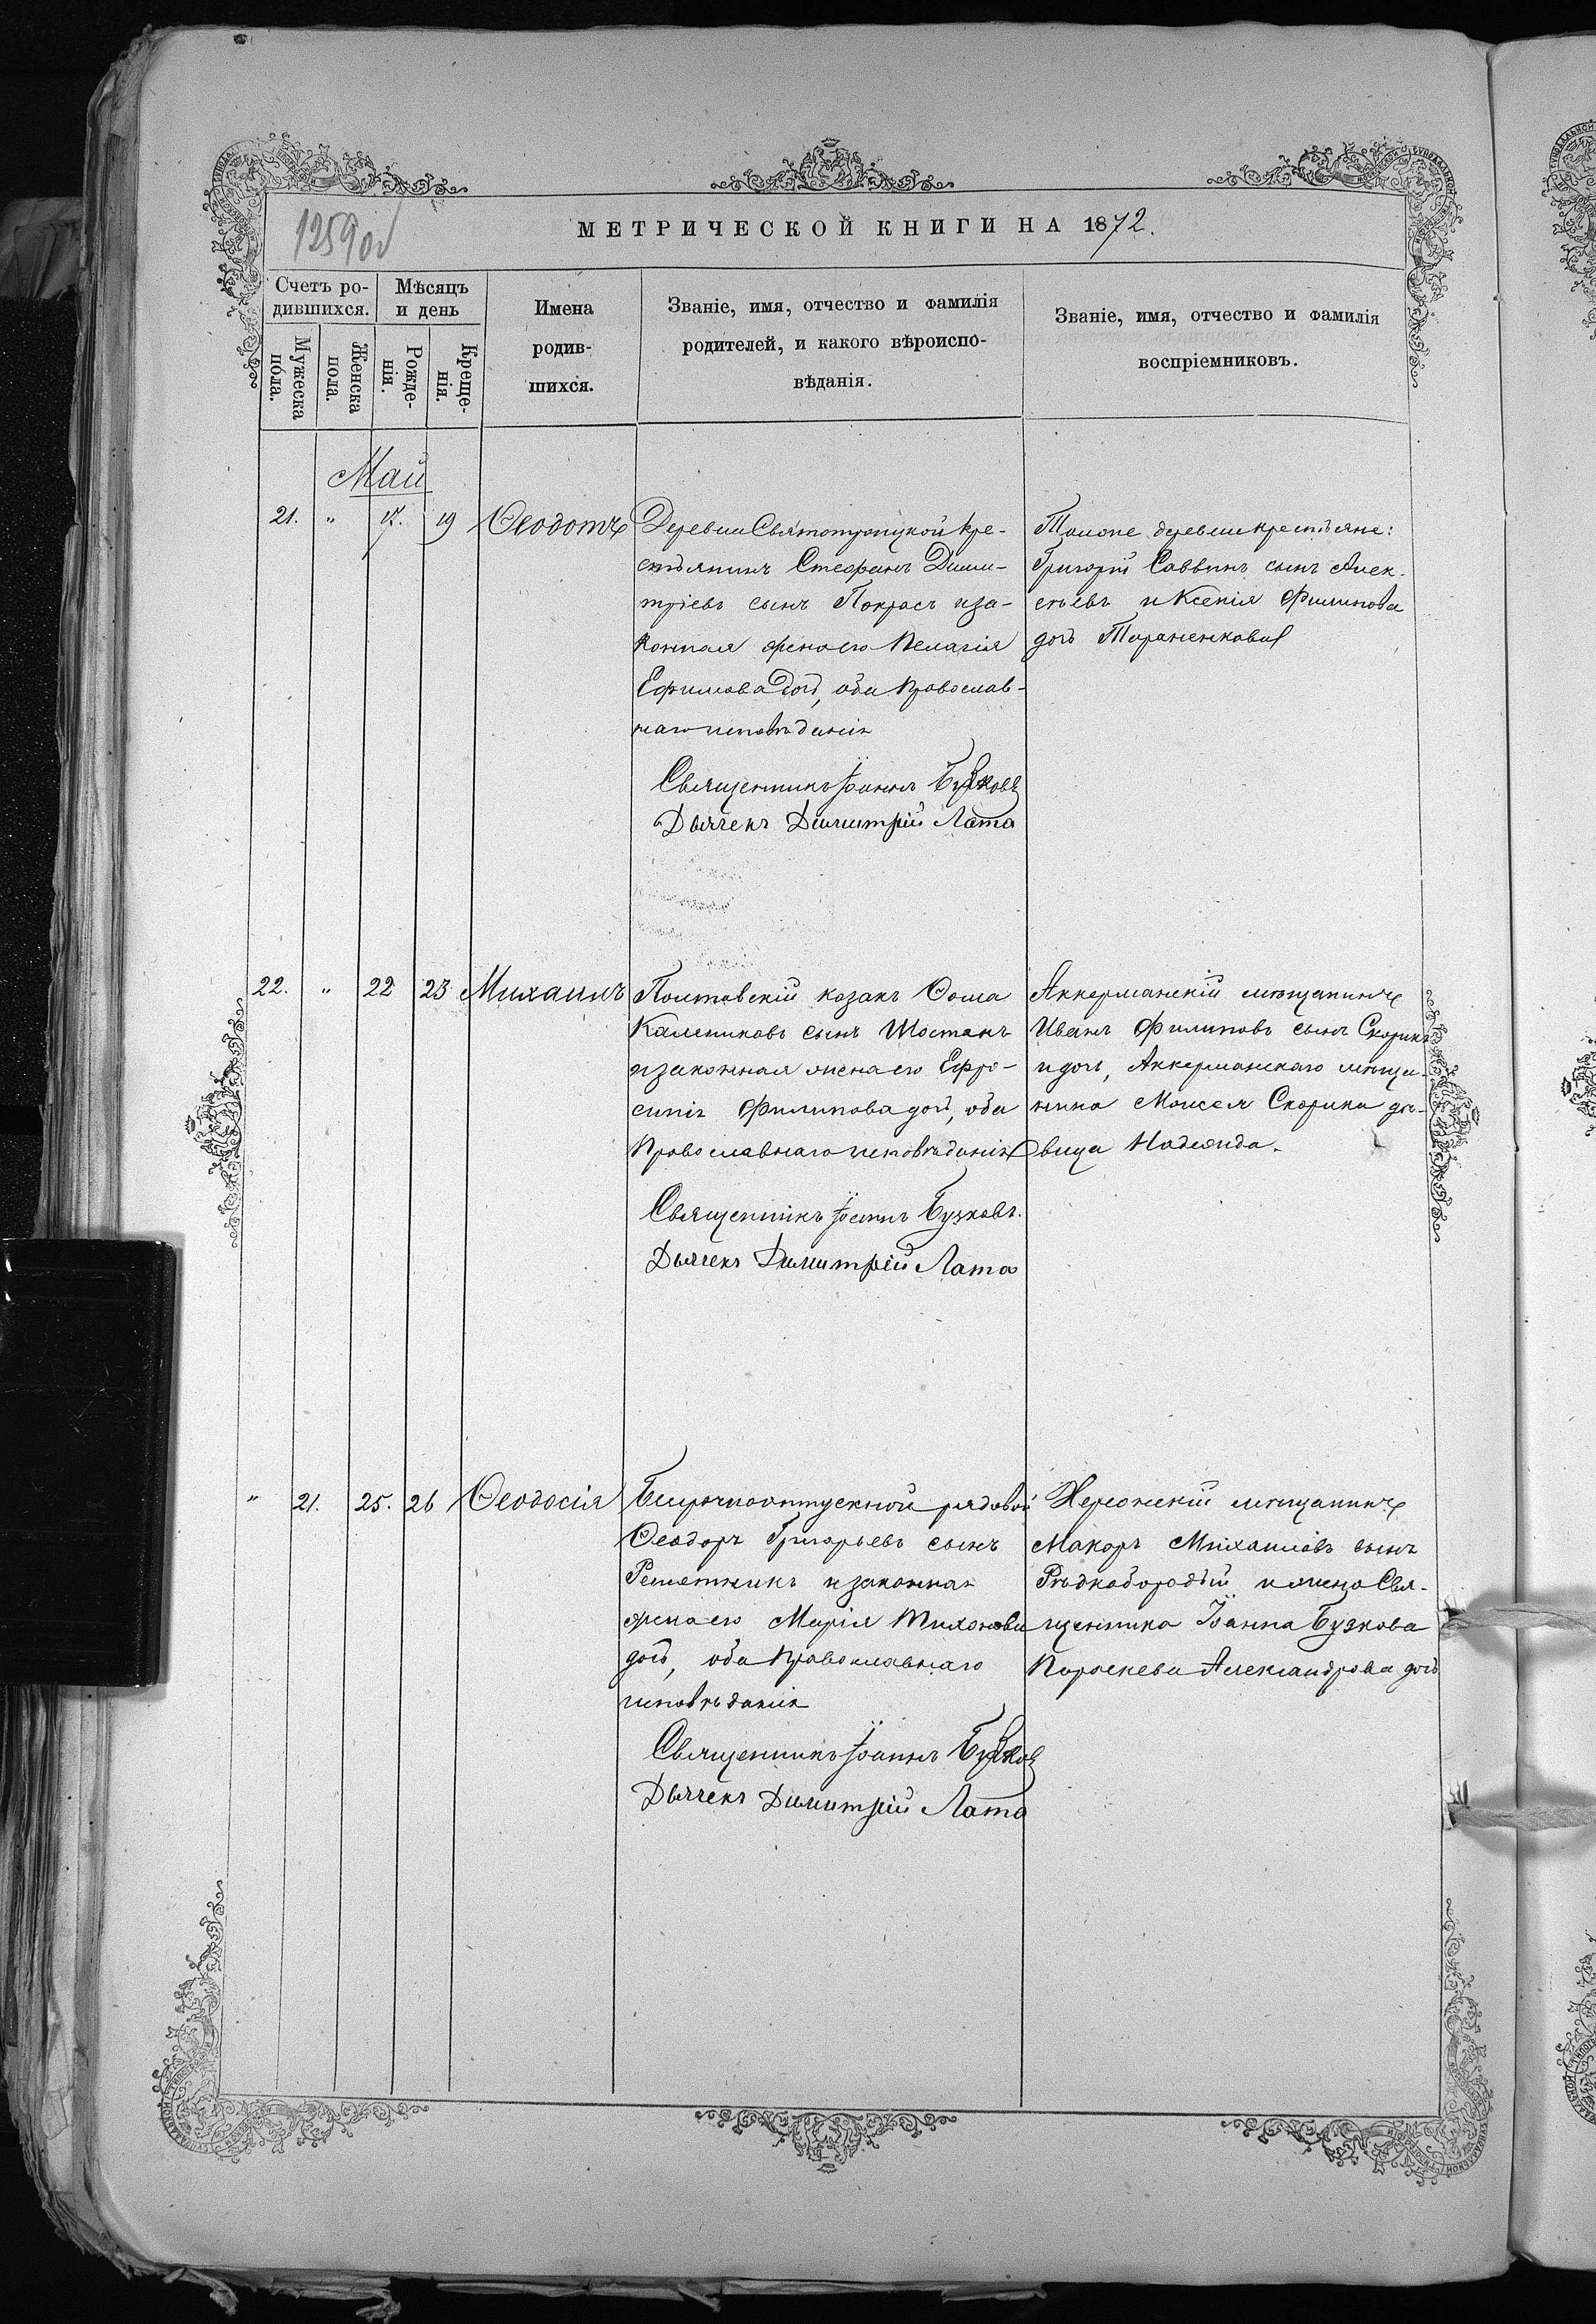 1259 об
МЕТРИЧЕСКОЙ КНИГИ НА 1872.
Счетъ ро-
дившихся.
Мужеска
пола.
Женска
пола.
Мѣсяцъ
и день
Рожде-
нія.
Креще-
нія.
Имена
родив-
шихся.
Званіе, имя, отчество и фамилія
родителей, и какого вѣроиспо-
вѣданія.
Званіе, имя, отчество и фамилія
воспріемниковъ.
Май
21. " 17. 19 Ѳеодотъ
Деревни Святотроицкой кре-
стьянинъ Стефанъ Дими-
тріевъ сынъ Покрасъ и за-
конная жена его Пелагія
Ефимова дочь, оба православ-
наго исповѣданія
Священникъ Іоаннъ Бузковъ
Дьячекъ Димитрій Лата
Тойже деревни крестьяне:
Григорій Саввинъ сынъ Алек-
сѣевъ и Ксенія Филипова
дочь Тараненкова
22. " 22 23 Михаилъ
Полтавскій козакъ Ѳома
Калениковъ сынъ Шостакъ
и законная жена его Ефро-
синія Филипова дочь, оба
православнаго исповѣданія
Священникъ Іоаннъ Бузковъ.
Дьячекъ Димитрій Лата
Аккерманскій мѣщанинъ
Иванъ Филиповъ сынъ Скорикъ
и дочь, Аккерманскаго мѣща-
нина Моисея Скорика дѣ-
вица Надежда.
" 21. 25. 26 Ѳеодосія
Безсрочноотпускной рядовой
Ѳеодоръ Григорьевъ сынъ
Решетникъ и законная
жена его Марія Тихонова
дочь, оба православнаго
исповѣданія
Священникъ Іоаннъ Бузковъ
Дьячекъ Димитрій Лата
Херсонскій мѣщанинъ
Макаръ Михаиловъ сынъ
Рѣдкобородый и жена Свя-
щенника Іоанна Бузкова
Параскева Александрова дочь